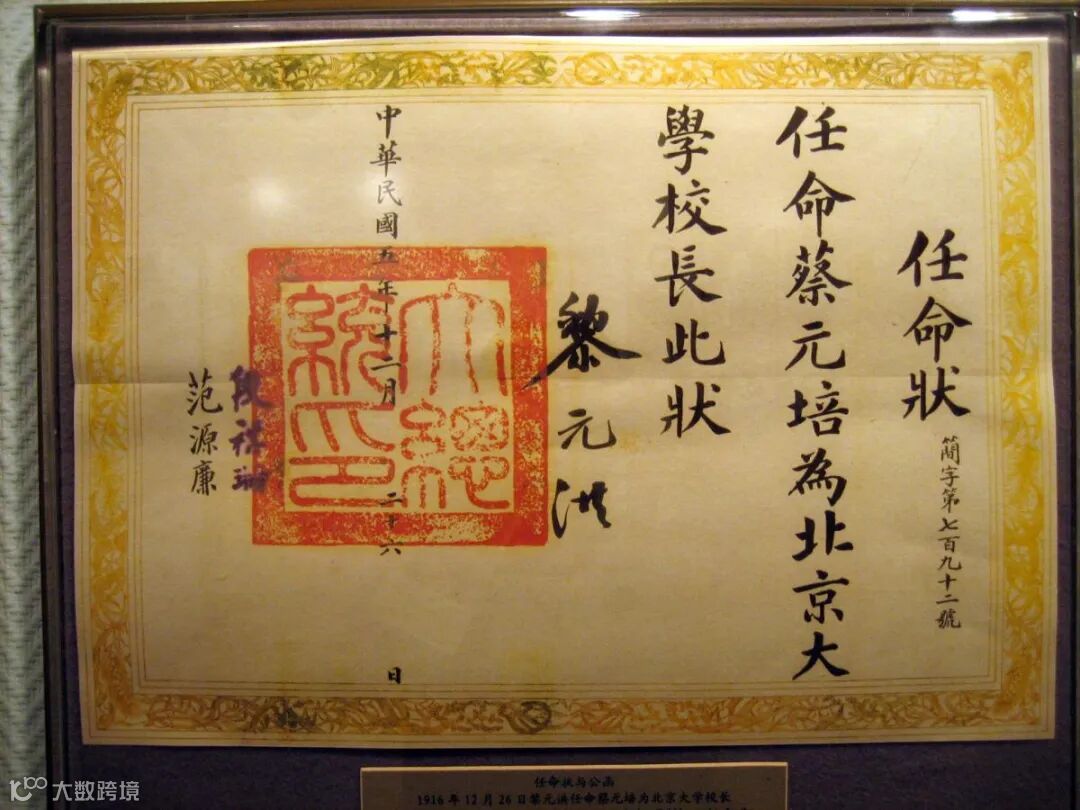 任命狀
簡字第七百九十二號
任命蔡元培為北京大
學校長此狀
黎元洪
大總
統印
中華民國五年十二月二十六日
段祺瑞
范源廉
任命状与公函
1916年12月26日黎元洪任命蔡元培为北京大学校长
大数跨境